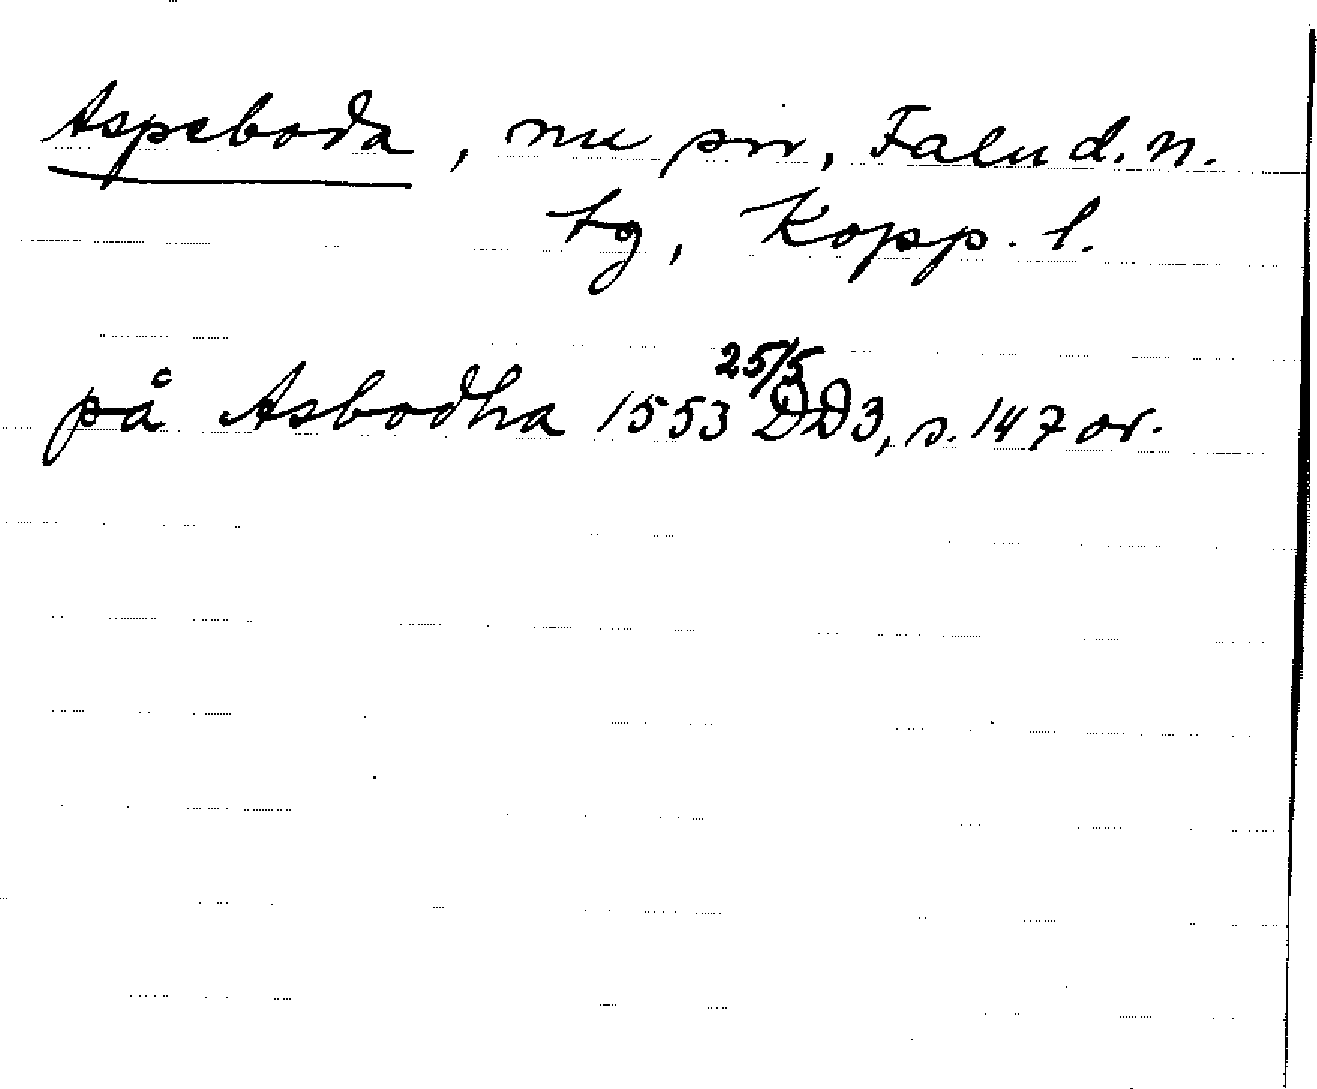 Aspeboda, nu sn, Falu d. n.
tg, Kopp. l.
på Asbodha 1553 25/5 DD3, s. 147 or.